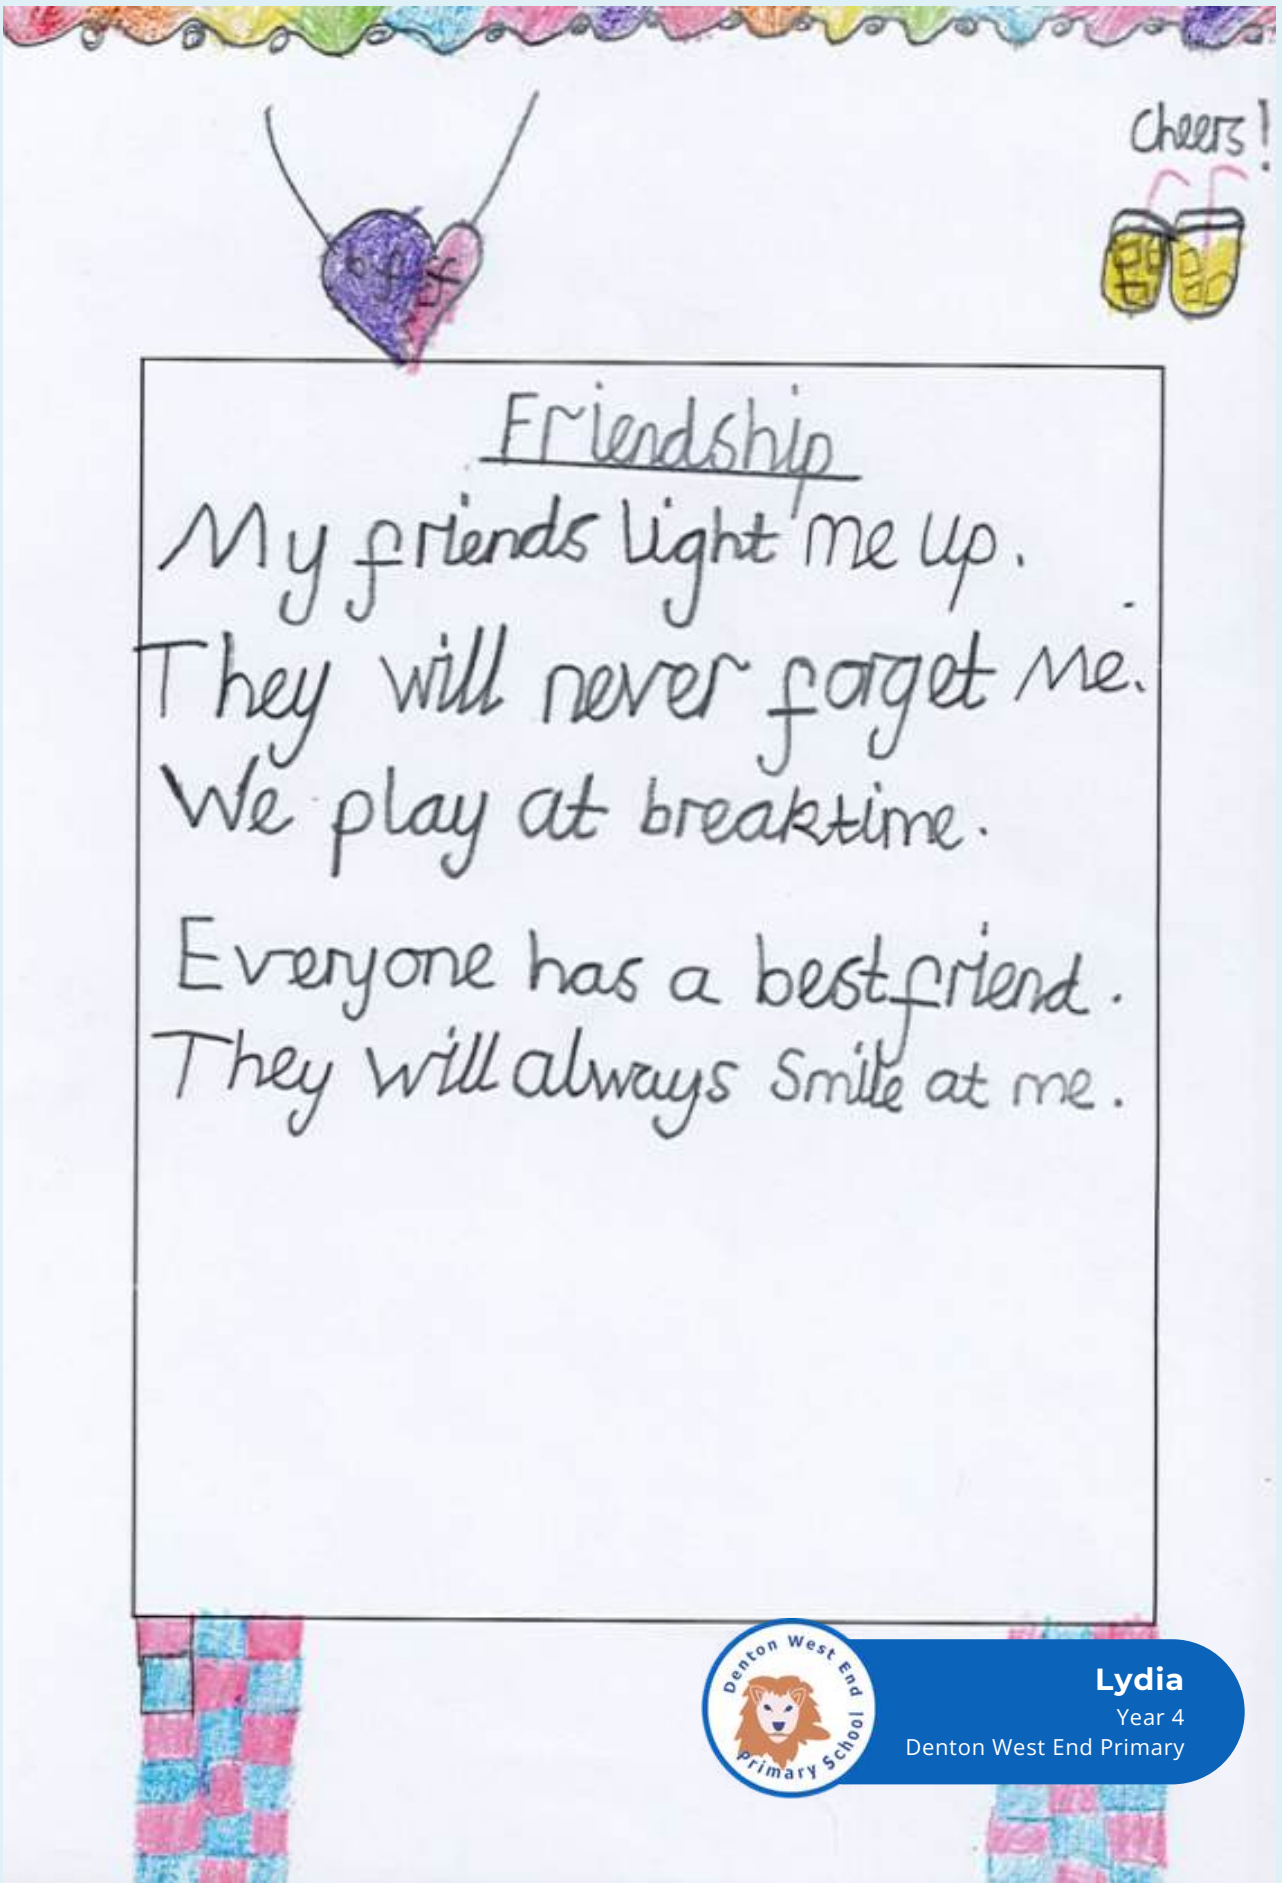 Cheers!
bff
Friendship
My friends light me up.
They will never forget me.
We play at breaktime.
Everyone has a best friend.
They will always smile at me.
Denton West End
Primary School
Lydia
Year 4
Denton West End Primary